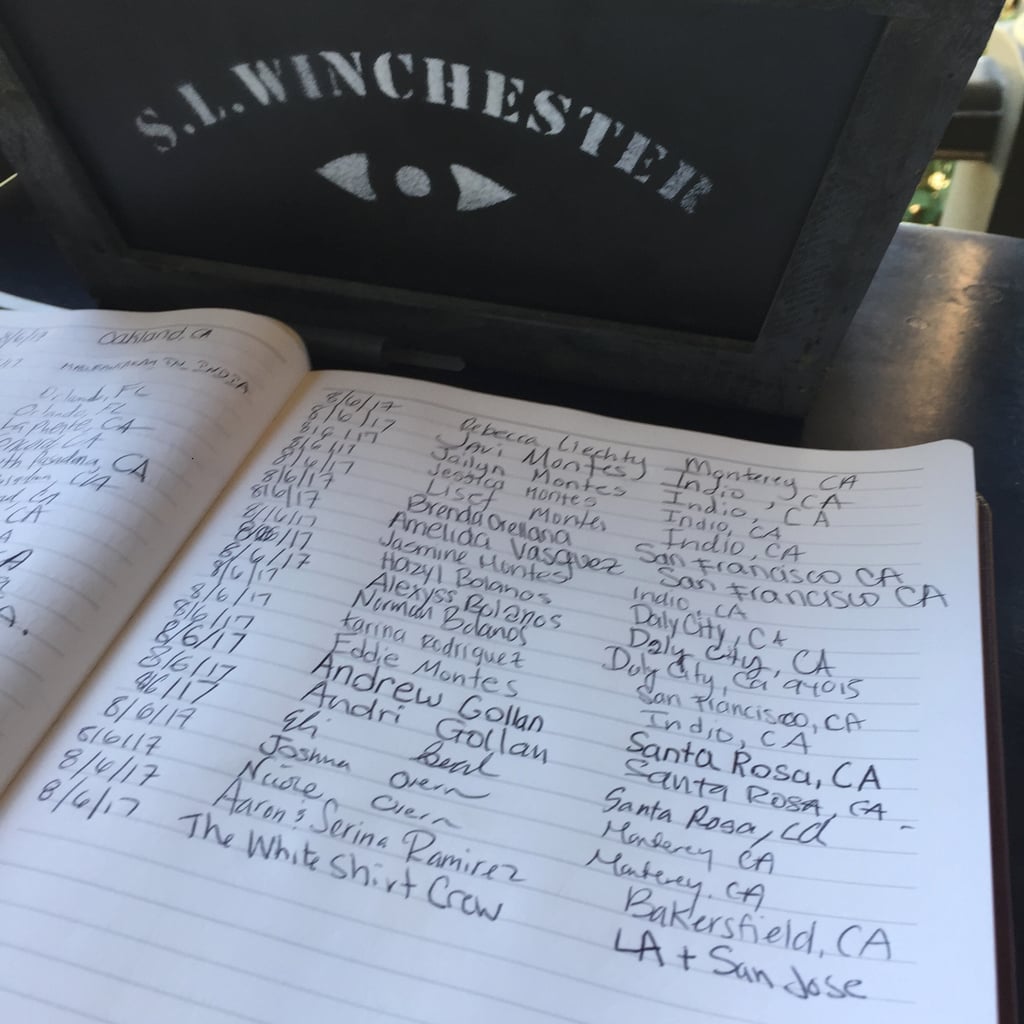 S.L.WINCHESTER
8/6/17 Oakland, CA
IN INDIA
Orlando, FL
Orlando, FL
La Puente, CA
CA
Pasadena, CA
CA
CA
CA
8/6/17 Rebecca Liechty Monterey CA
8/6/17 Javi Montes Indio, CA
8/6/17 Jailyn Montes Indio, CA
8/6/17 Jessica Montes Indio, CA
8/6/17 Liset Montes Indio, CA
8/6/17 Brenda Orellana San Francisco CA
8/6/17 Amelida Vasquez San Francisco CA
8/6/17 Jasmine Montes Indio, CA
8/6/17 Hazyl Bolanos Daly City, CA
8/6/17 Alexyss Bolanos Daly City, CA
8/6/17 Norman Bolanos Daly City, Ca 94015
8/6/17 Karina Rodriguez San Francisco, CA
8/6/17 Eddie Montes Indio, CA
8/6/17 Andrew Gollan Santa Rosa, CA
8/6/17 Andri Gollan Santa ROSA, CA
8/6/17 Eli Santa Rosa, Ca
8/6/17 Joshua Overn Monterey CA
8/6/17 Nicole Overn Monterey, CA
8/6/17 Aaron & Serina Ramirez Bakersfield, CA
8/6/17 The White Shirt Crew LA + San Jose